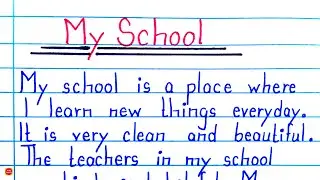 My School
My school is a place where
I learn new things everyday.
It is very clean and beautiful.
The teachers in my school